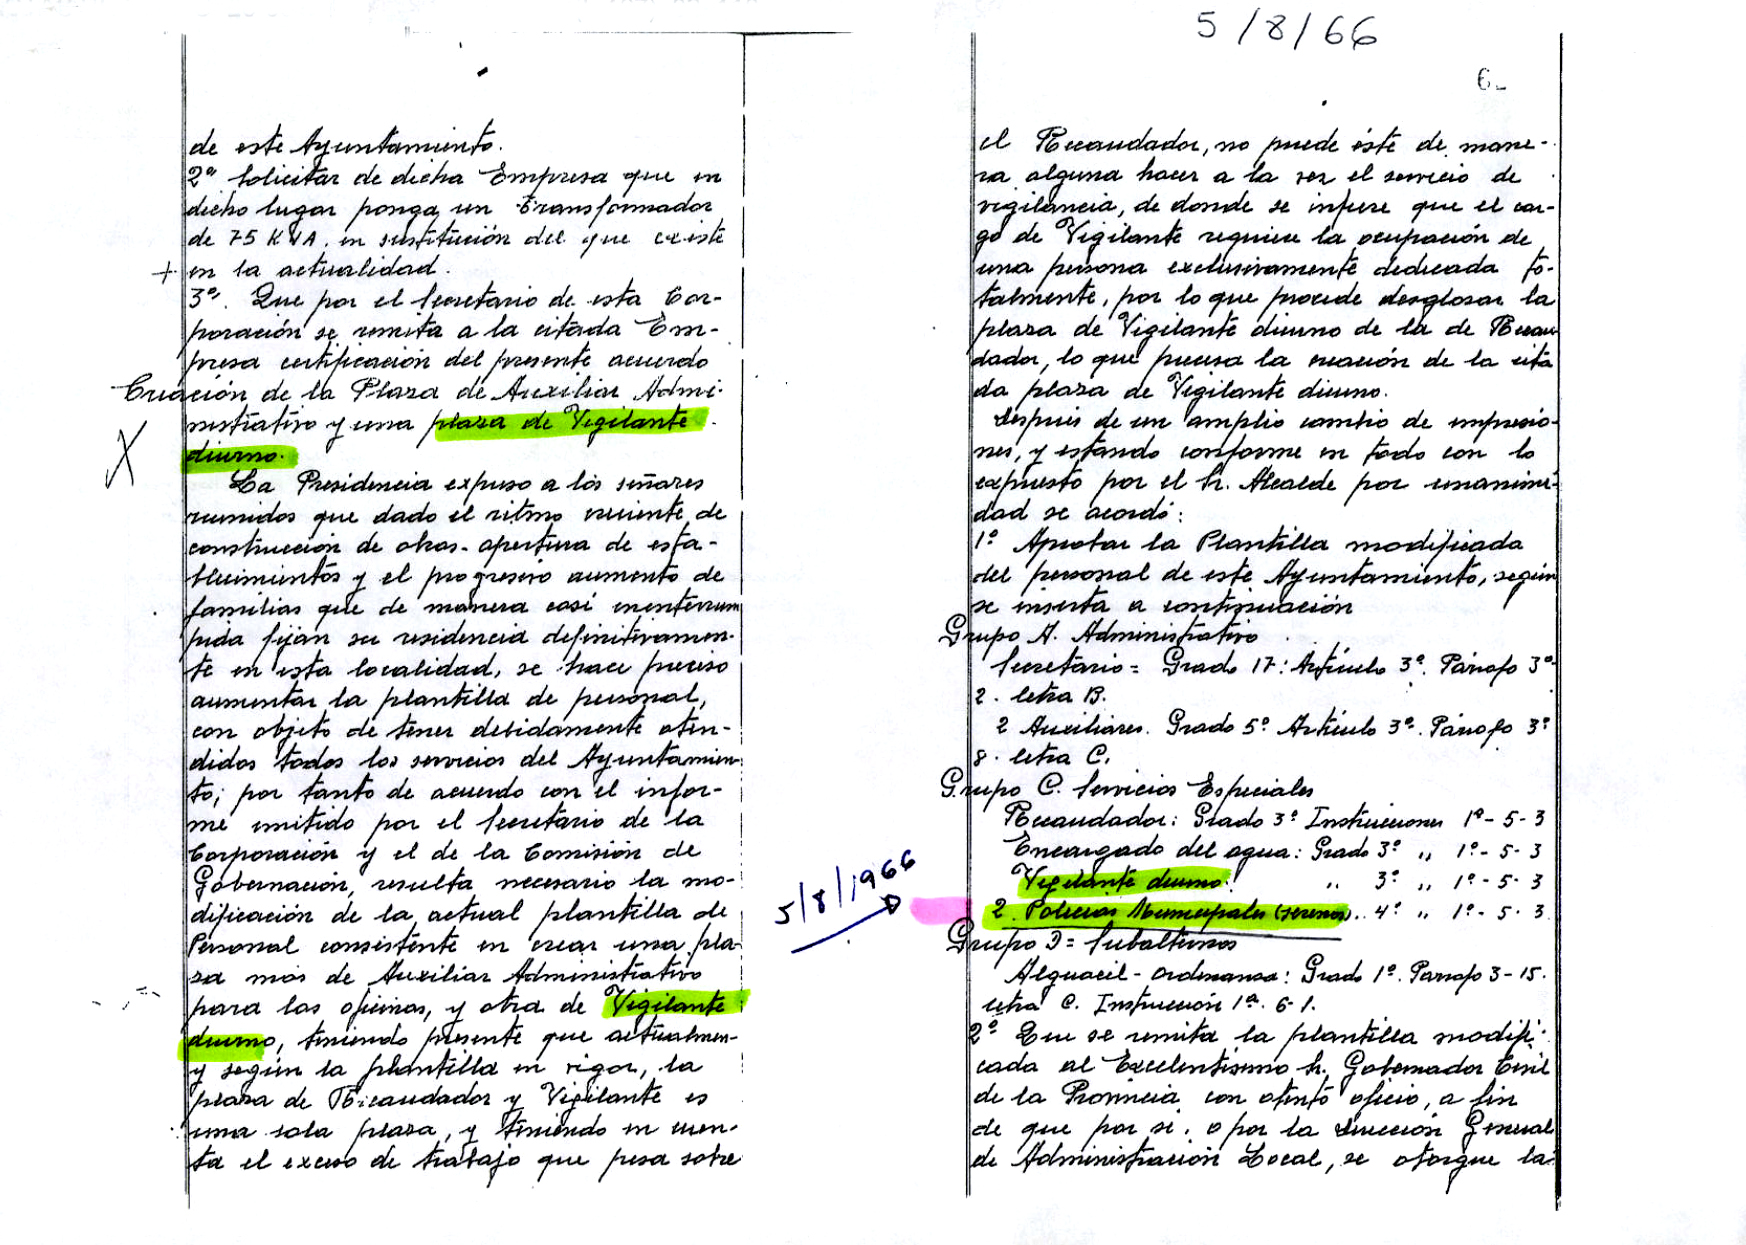 de este Ayuntamiento.
2º Solicitar de dicha Empresa que en
dicho lugar ponga un Transformador
de 75 KVA. en sustitución del que existe
+ en la actualidad.
3º. Que por el Secretario de esta Cor-
poración se remita a la citada Em-
presa certificación del presente acuerdo
Creación de la Plaza de Auxiliar Admi-
nistrativo y una plaza de Vigilante
X diurno.
La Presidencia expuso a los señores
reunidos que dado el ritmo creciente de
construcción de obras- apertura de esta-
blecimientos y el progresivo aumento de
familias que de manera casi inenterrum
pida fijan su residencia definitivamen-
te en esta localidad, se hace preciso
aumentar la plantilla de personal,
con objeto de tener debidamente aten-
didos todos los servicios del Ayuntamien
to; por tanto de acuerdo con el infor-
me emitido por el Secretario de la
Corporación y el de la Comisión de
Gobernación, resulta necesario la mo-
dificación de la actual plantilla de
Personal consistente en crear una pla-
za mas de Auxiliar Administrativo
para las oficinas, y otra de Vigilante
diurno, teniendo presente que actualmen-
y según la plantilla en vigor, la
plaza de Recaudador y Vigilante es
una sola plaza, y teniendo en cuen-
ta el exceso de trabajo que pesa sobre
5/8/66
6-
el Recaudador, no puede éste de mane-
ra alguna hacer a la vez el servicio de
vigilancia, de donde se infiere que el car-
go de Vigilante requiere la ocupación de
una persona exclusivamente dedicada to-
talmente, por lo que procede desglosar la
plaza de Vigilante diurno de la de Recau
dador, lo que precisa la creación de la cita
da plaza de Vigilante diurno.
Después de un amplio cambio de impresio-
nes, y estando conforme en todo con lo
expuesto por el Sr. Alcalde por unanimi-
dad se acordó:
1º Aprobar la Plantilla modificada
del personal de este Ayuntamiento, según
se inserta a continuación
Grupo A. Administrativo
Secretario= Grado 17: Artículo 3º. Párrafo 3º-
2. letra B.
2 Auxiliares. Grado 5º Artículo 3º. Párrafo 3º
8. letra C.
Grupo C. Servicios Especiales
Recaudador: Grado 3º Instrucciones 1ª- 5- 3
Encargado del agua: Grado 3º ,, 1ª- 5- 3
Vigilante diurno: ,, 3º ,, 1ª- 5- 3
5/8/1966
2. Policias Municipales (serenos).. 4º ,, 1ª- 5. 3
Grupo D= Subalternos
Alguacil- ordenanza: Grado 1º. Parrafo 3-15.
letra C. Instrucción 1ª. 6-1.
2º Que se remita la plantilla modifi-
cada al Excelentísimo Sr. Gobernador Civil
de la Provincia con atento oficio, a fin
de que por si, o por la Dirección General
de Administración Local, se otorgue la